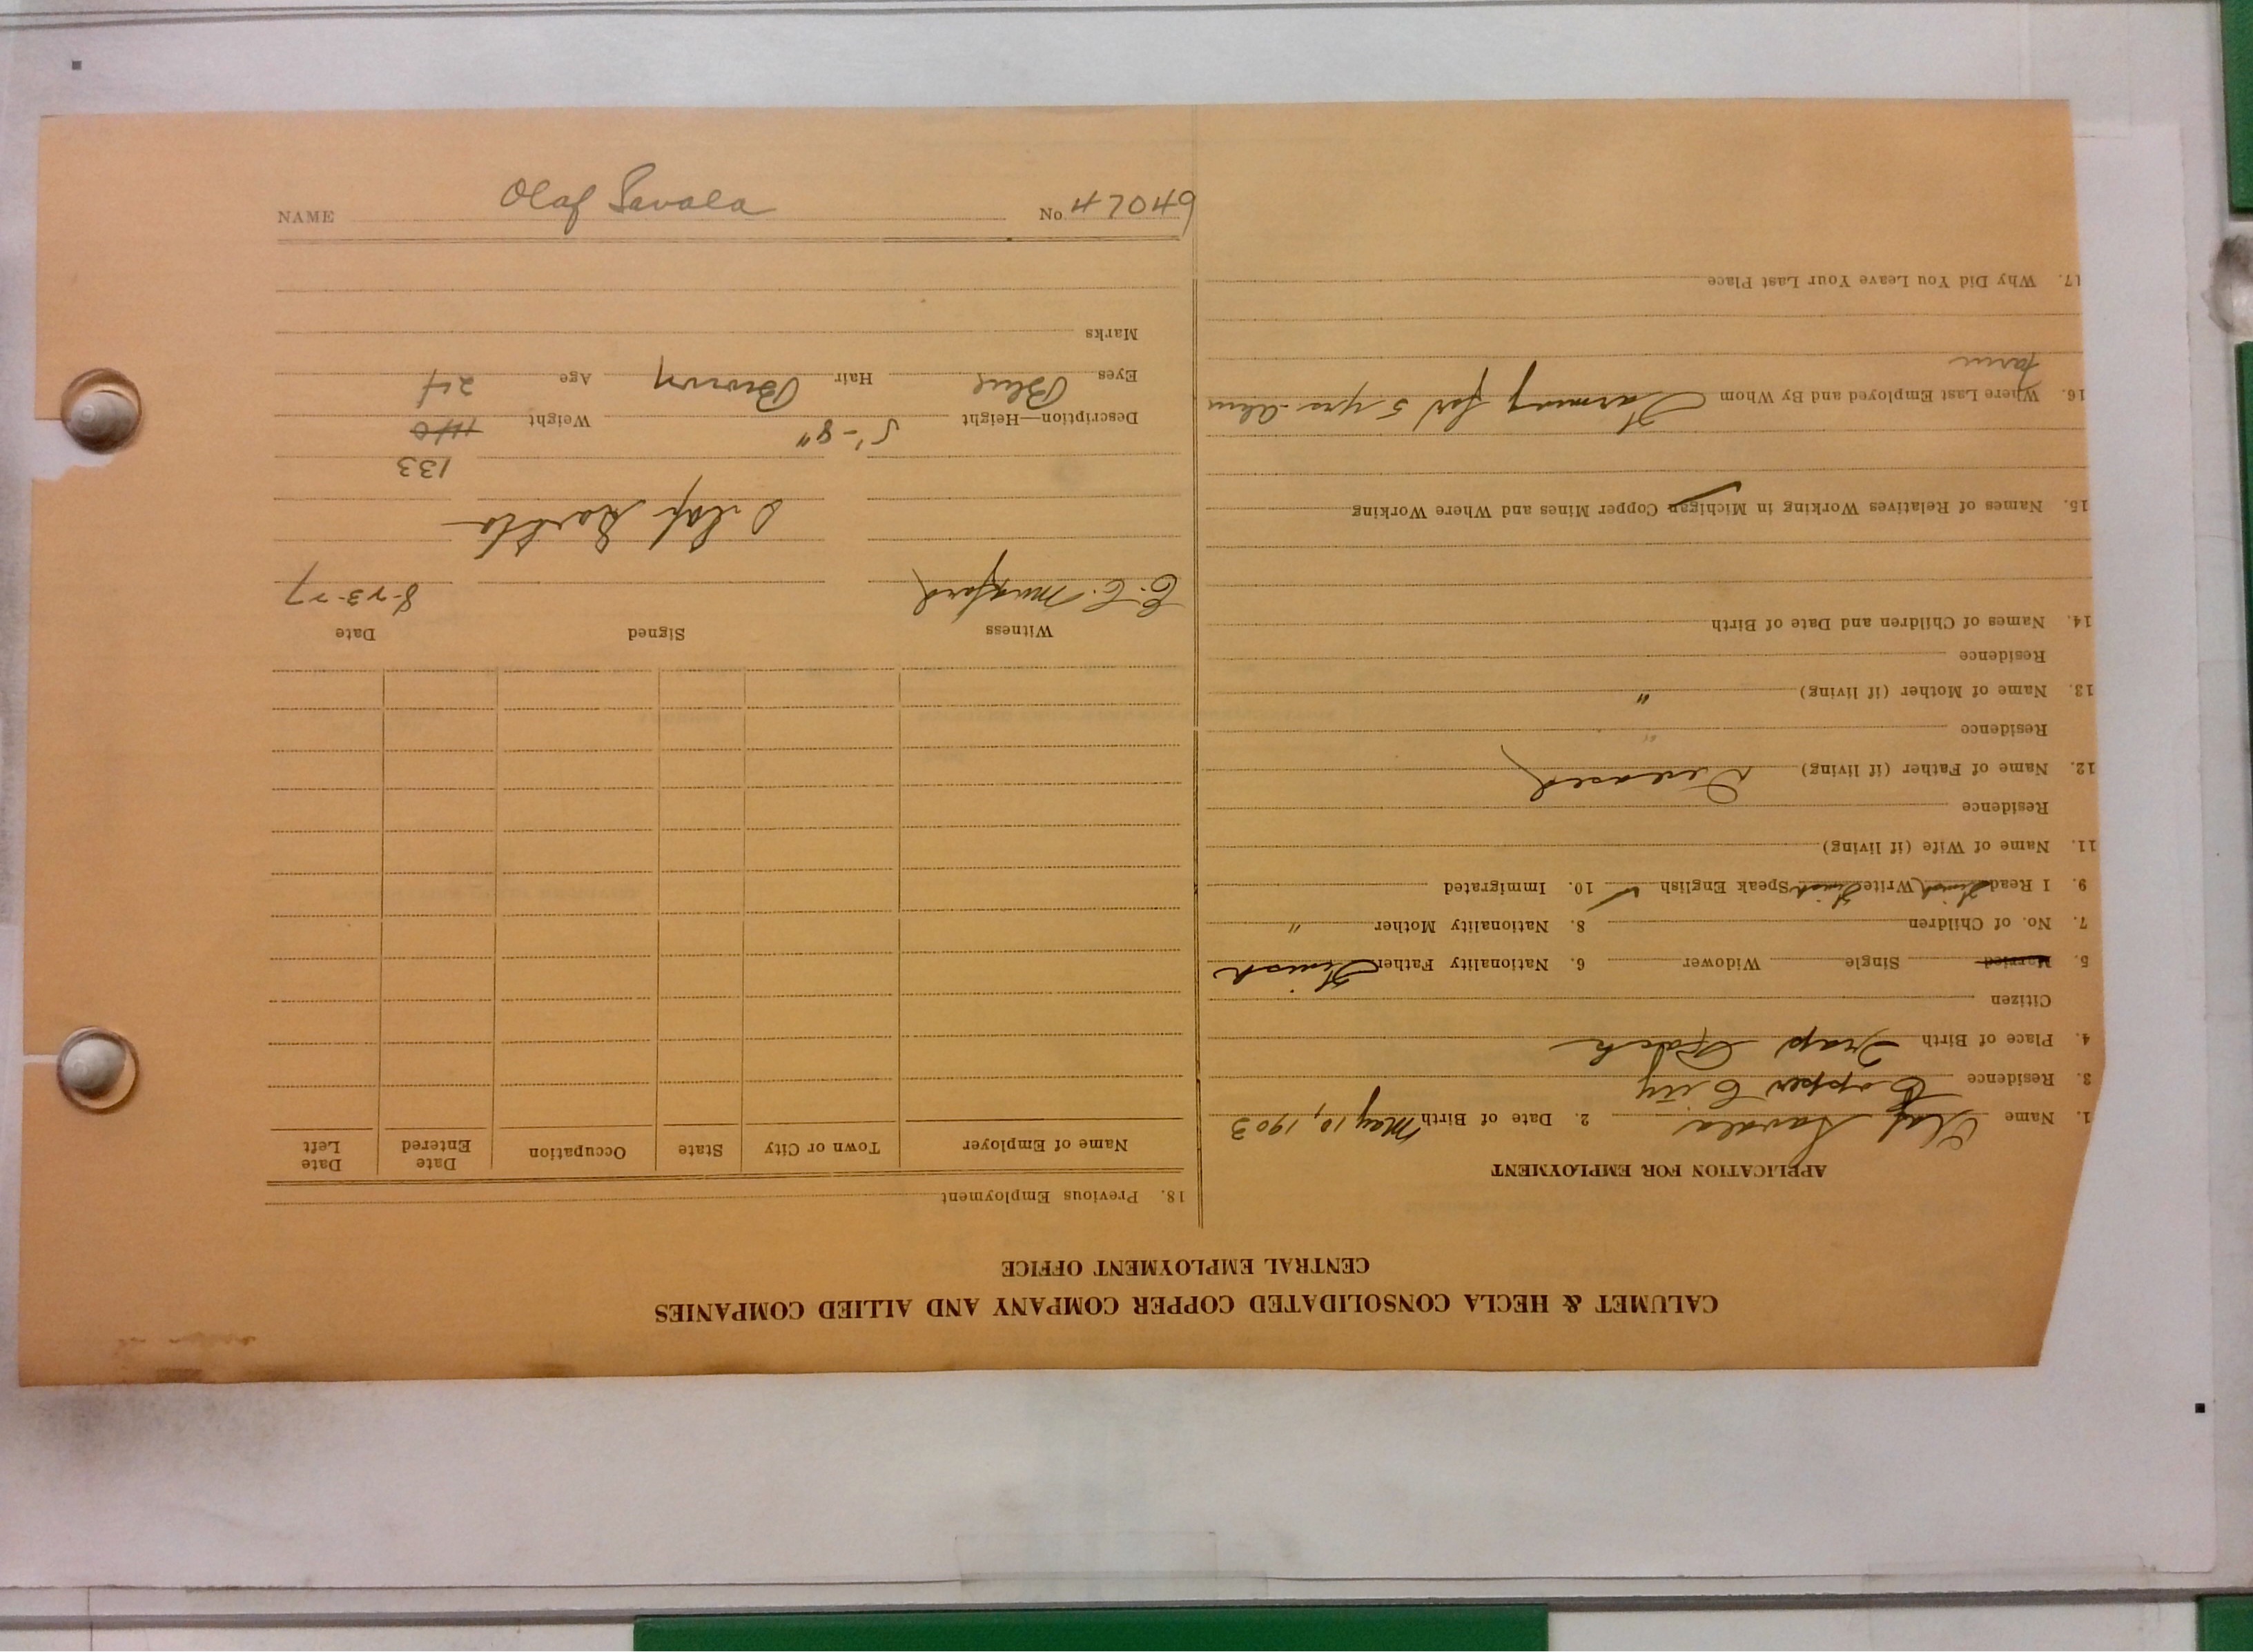 CALUMET & HECLA CONSOLIDATED COPPER COMPANY AND ALLIED COMPANIES
CENTRAL EMPLOYMENT OFFICE
APPLICATION FOR EMPLOYMENT
1. Name Olaf Savala 2. Date of Birth May 10, 1903
3. Residence Copper City
4. Place of Birth Trap Rock
Citizen
5. Married Single Widower 6. Nationality Father Finish
7. No. of Children 8. Nationality Mother "
9. I Read Finish Write Finish Speak English ✓ 10. Immigrated
11. Name of Wife (if living)
Residence
12. Name of Father (if living) Deceased
Residence "
13. Name of Mother (if living) "
Residence
14. Names of Children and Date of Birth
15. Names of Relatives Working in Michigan Copper Mines and Where Working
16. Where Last Employed and By Whom Farming for 5 yrs
farm
17. Why Did You Leave Your Last Place
18. Previous Employment
Name of Employer Town or City State Occupation Date Entered Date Left
Witness Signed Date
C. C. Mugford 8-23-27
Olaf
133
Description—Height 5'-8" Weight 140
Eyes Blue Hair Brown Age 24
Marks
NAME Olaf Savala No 47049